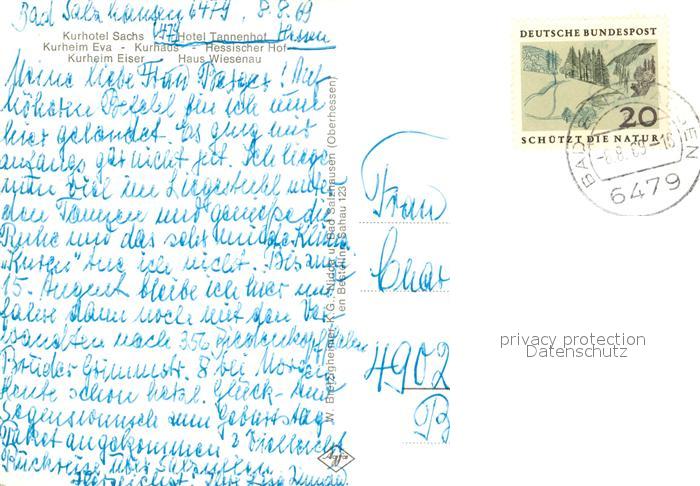 Bad Salzhausen 6479, 8.8.69
Hessen
Kurhotel Sachs - Hotel Tannenhof
Kurheim Eva - Kurhaus - Hessischer Hof
Kurheim Eiser Haus Wiesenau
Meine liebe Frau ! Auf
höheren Befehl bin ich nun
hier gelandet. Es ging mir
anfangs gar nicht gut. Ich liege
nun viel im Liegestuhl unter
den Tannen und genieße die
Ruhe und das sehr milde Klima
"Kuren" tue ich nicht. Bis zum
15. August bleibe ich hier und
fahre dann noch mit den Ver-
wandten nach 356
Brüder Grimmstr. 8 bei
Heute schon herzl. Glück- und
Segenswunsch zum Geburtstag
Paket angekommen? Vielleicht
Rückreise über
Herzlichst Ihre
W. Bretzigheimer K.G., Nidda u. Bad Salzhausen (Oberhessen)
en Bestellnr. Sahau 123
Frau
Char
4902
B
DEUTSCHE BUNDESPOST
20
SCHÜTZT DIE NATUR
BAD EN
-8.8.69-16
6479
privacy protection
Datenschutz
Agfa